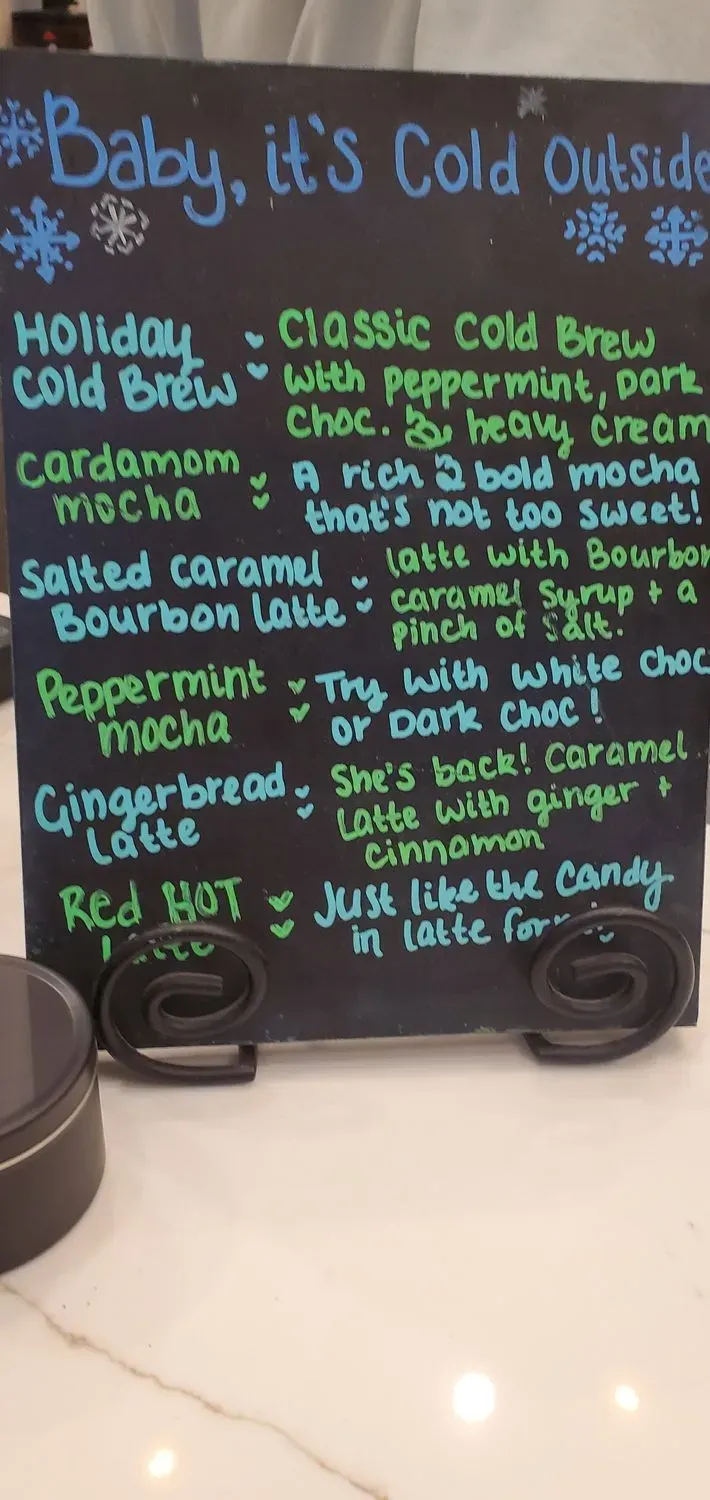 Baby, it's Cold Outside
Holiday
Cold Brew
Classic Cold Brew
with peppermint, Dark
Choc. & heavy cream
Cardamom
mocha
A rich & bold mocha
that's not too sweet!
Salted Caramel
Bourbon Latte
latte with Bourbon
caramel Syrup + a
pinch of Salt.
Peppermint
mocha
Try with white choc
or Dark choc!
Gingerbread
Latte
She's back! Caramel
Latte with ginger +
cinnamon
Red HOT
Just like the Candy
in latte